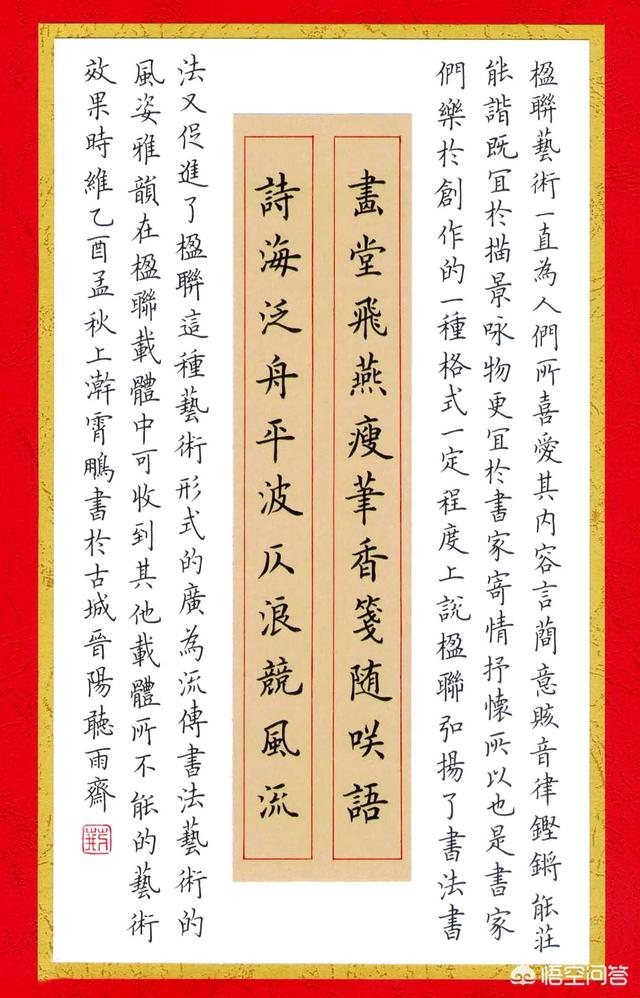 楹聯藝術一直為人們所喜愛其内容言蕳意賅音律鏗鏘能莊
能諧既宜於描景咏物更宜於書家寄情抒懷所以也是書家
們樂於創作的一種格式一定程度上說楹聯弘揚了書法書
畫堂飛燕瘦筆香箋随咲語
詩海泛舟平波仄浪競風流
法又促進了楹聯這種藝術形式的廣為流傳書法藝術的
風姿雅韻在楹聯載體中可收到其他載體所不能的藝術
效果時維乙酉孟秋上澣霄鵬書於古城晉陽聽雨齋
悟空问答